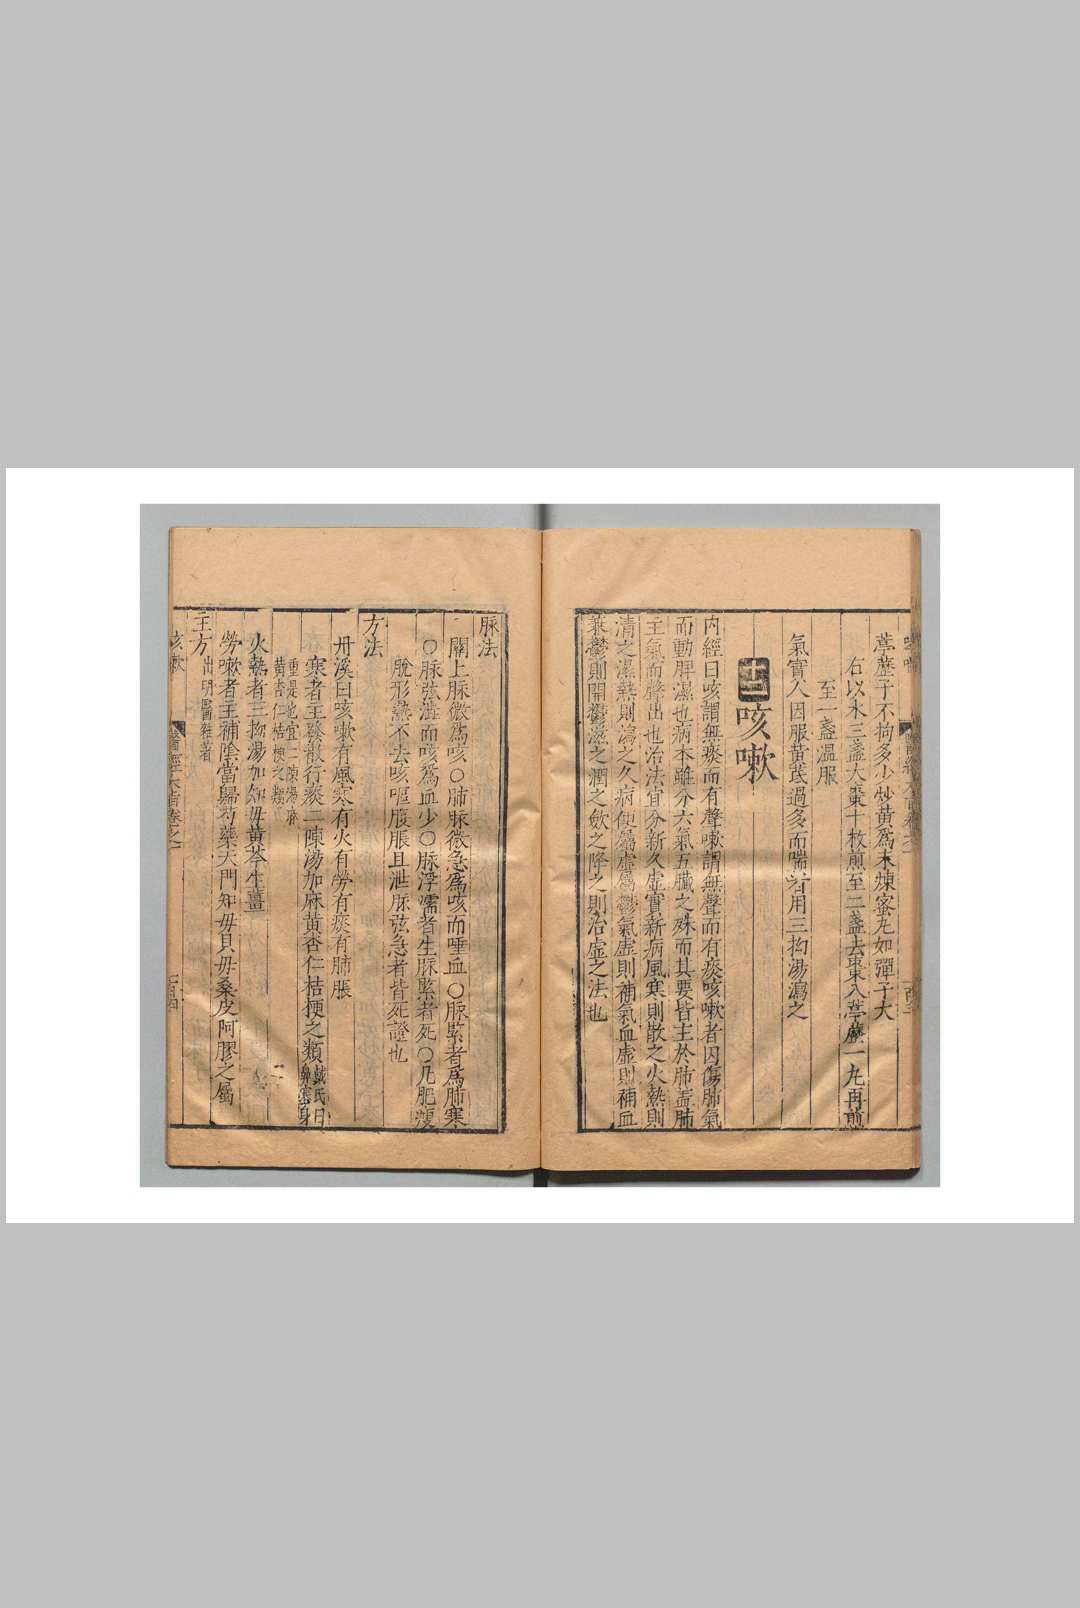 葶藶子不拘多少炒黃爲末煉蜜丸如彈子大
右以水三盞大棗十枚煎至二盞去棗入葶藶一丸再煎
至一盞温服
氣實人因服黃芪過多而喘者用三拗湯瀉之
十二 咳嗽
內經曰咳謂無痰而有聲嗽謂無聲而有痰咳嗽者因傷肺氣
而動脾濕也病本雖分六氣五臟之殊而其要皆主於肺盖肺
主氣而聲出也治法宜分新久虛實新病風寒則散之火熱則
清之濕熱則瀉之久病便屬虛屬鬱氣虛則補氣血虛則補血
兼鬱則開鬱滋之潤之斂之降之則治虛之法也
脉法
關上脉微爲咳○肺脉微急爲咳而唾血○脉緊者爲肺寒
○脉弦澁而咳爲血少○脉浮濡者生脉緊者死○凡肥瘦
脫形熱不去咳嘔腹脹且泄脉弦急者皆死證也
方法
丹溪曰咳嗽有風寒有火有勞有痰有肺脹
寒者主發散行痰二陳湯加麻黃杏仁桔梗之類戴氏曰鼻塞身
重是也宜二陳湯麻黃杏仁桔梗之類
火熱者三拗湯加知毋黃芩生薑
勞嗽者主補陰當歸芍藥天門知毋貝毋桑皮阿膠之屬
主方出明醫雜著
咳嗽 醫經大旨卷之 二百四